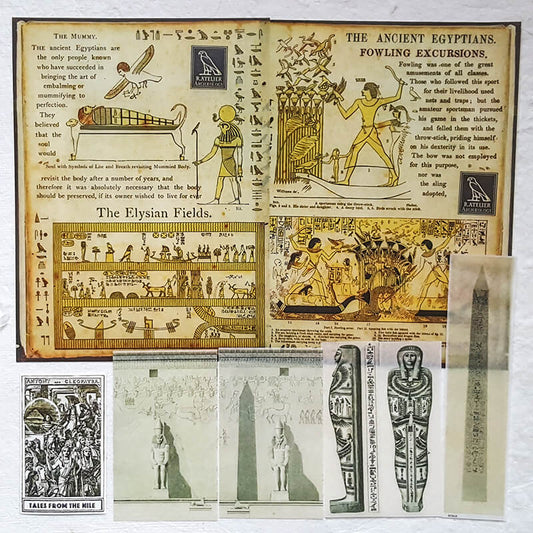 THE MUMMY.
THE ancient Egyptians are
the only people known
who have succeeded in
bringing the art of
embalming or
mummifying to
perfection.
They
believed
that the
soul
would
Soul with Symbols of Life and Breath revisiting Mummied Body.
revisit the body after a number of years, and
therefore it was absolutely necessary that the body
should be preserved, if its owner wished to live for ever
R.ATELIER
ARCHEOLOGY
The Elysian Fields.
THE ANCIENT EGYPTIANS.
FOWLING EXCURSIONS.
Fowling was one of the great
amusements of all classes.
Those who followed this sport
for their livelihood used
nets and traps; but the
amateur sportsman pursued
his game in the thickets,
and felled them with the
throw-stick, priding himself
on his dexterity in its use.
The bow was not employed
for this purpose,
nor was
the sling
adopted,
R.ATELIER
ARCHEOLOGY
A sportsman using the throw-stick.
ANTONY AND CLEOPATRA
TALES FROM THE NILE